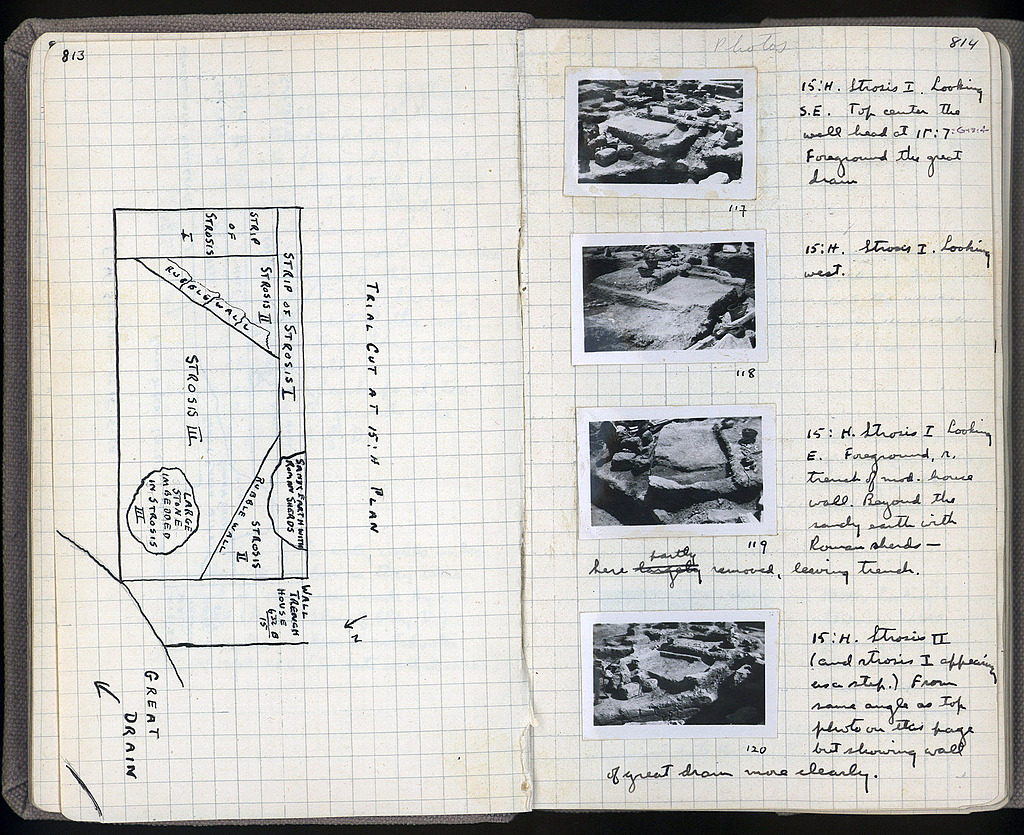 813
TRIAL CUT AT 15:H PLAN
STRIP OF STROSIS I
STRIP
OF
STROSIS
I
STROSIS II
RUBBLE WALL
STROSIS III
SANDY EARTH WITH
ROMAN SHERDS
STROSIS
II
RUBBLE WALL
LARGE
STONE
IMBEDDED
IN STROSIS
III
WALL
TRENCH
HOUSE
632 B
15
N
GREAT
DRAIN
Photos
814
15:H. Strosis I. Looking
S.E. Top center the
well head at 15:7
Foreground the great
drain
117
15:H. Strosis I. Looking
west.
118
15:H. Strosis I Looking
E. Foreground, r.
trench of mod. house
wall. Beyond the
sandy earth with
Roman sherds —
119
here largely partly removed, leaving trench.
15:H. Strosis II
(and strosis I appearing
as a step.) From
same angle as top
photo on this page
but showing wall
120
of great drain more clearly.